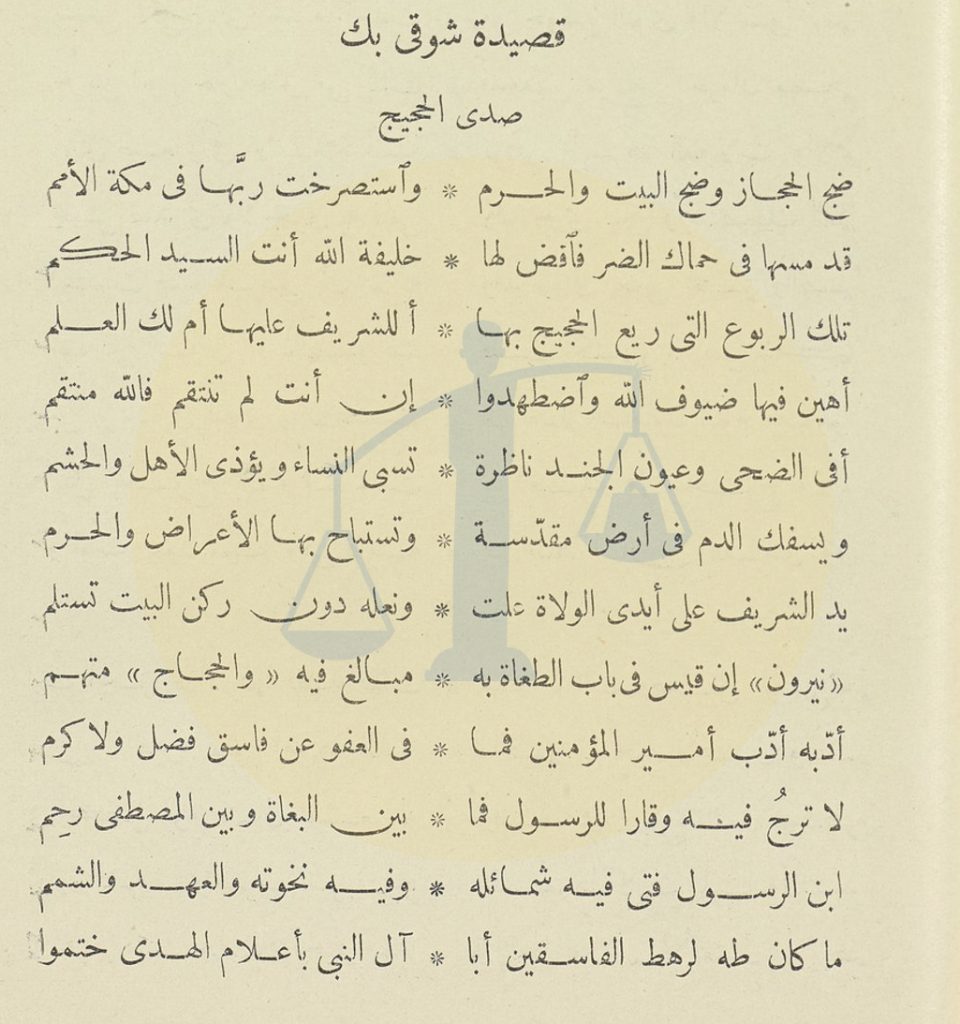 قصيدة شوقى بك
صدى الحجيج
ضج الحجاز وضج البيت والحرم * وٱستصرخت ربَّها فى مكة الأمم
قد مسها فى حماك الضر فٱقض لها * خليفة الله أنت السيد الحكم
تلك الربوع التى ريع الحجيج بها * أ للشريف عليها أم لك العلم
أهين فيها ضيوف الله وٱضطهدوا * إن أنت لم تنتقم فالله منتقم
أفى الضحى وعيون الجند ناظرة * تسبى النساء ويؤذى الأهل والحشم
ويسفك الدم فى أرض مقدّسة * وتستباح بها الأعراض والحرم
يد الشريف على أيدى الولاة علت * ونعله دون ركن البيت تستلم
«نيرون» إن قيس فى باب الطغاة به * مبالغ فيه «والحجاج» متهم
أدّبه أدّب أمير المؤمنين فما * فى العفو عن فاسق فضل ولا كرم
لا ترجُ فيه وقارا للرسول فما * بين البغاة وبين المصطفى رحِم
ابن الرسول فتى فيه شمائله * وفيه نخوته والعهد والشمم
ما كان طه لرهط الفاسقين أبا * آل النبى بأعلام الهدى ختموا